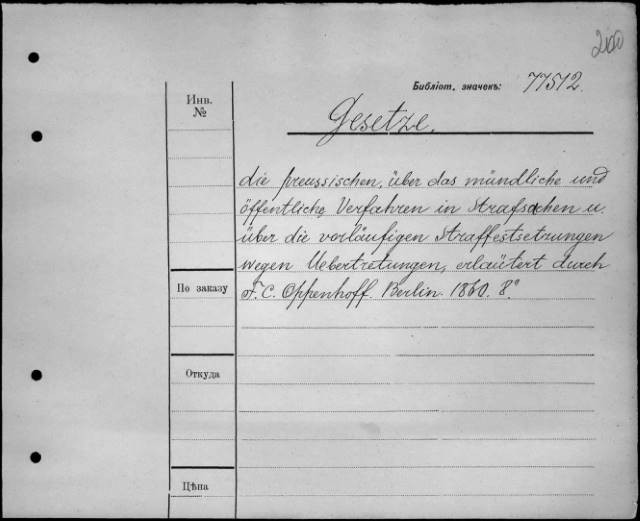 200
Библіот. значекъ: 77512.
Инв.
№
Gesetze.
die preussischen, über das mündliche und
öffentliche Verfahren in Strafsachen u.
über die vorläufigen Straffestsetzungen
wegen Uebertretungen, erläutert durch
По заказу
F. C. Oppenhoff. Berlin. 1860. 8°
Откуда
Цѣна